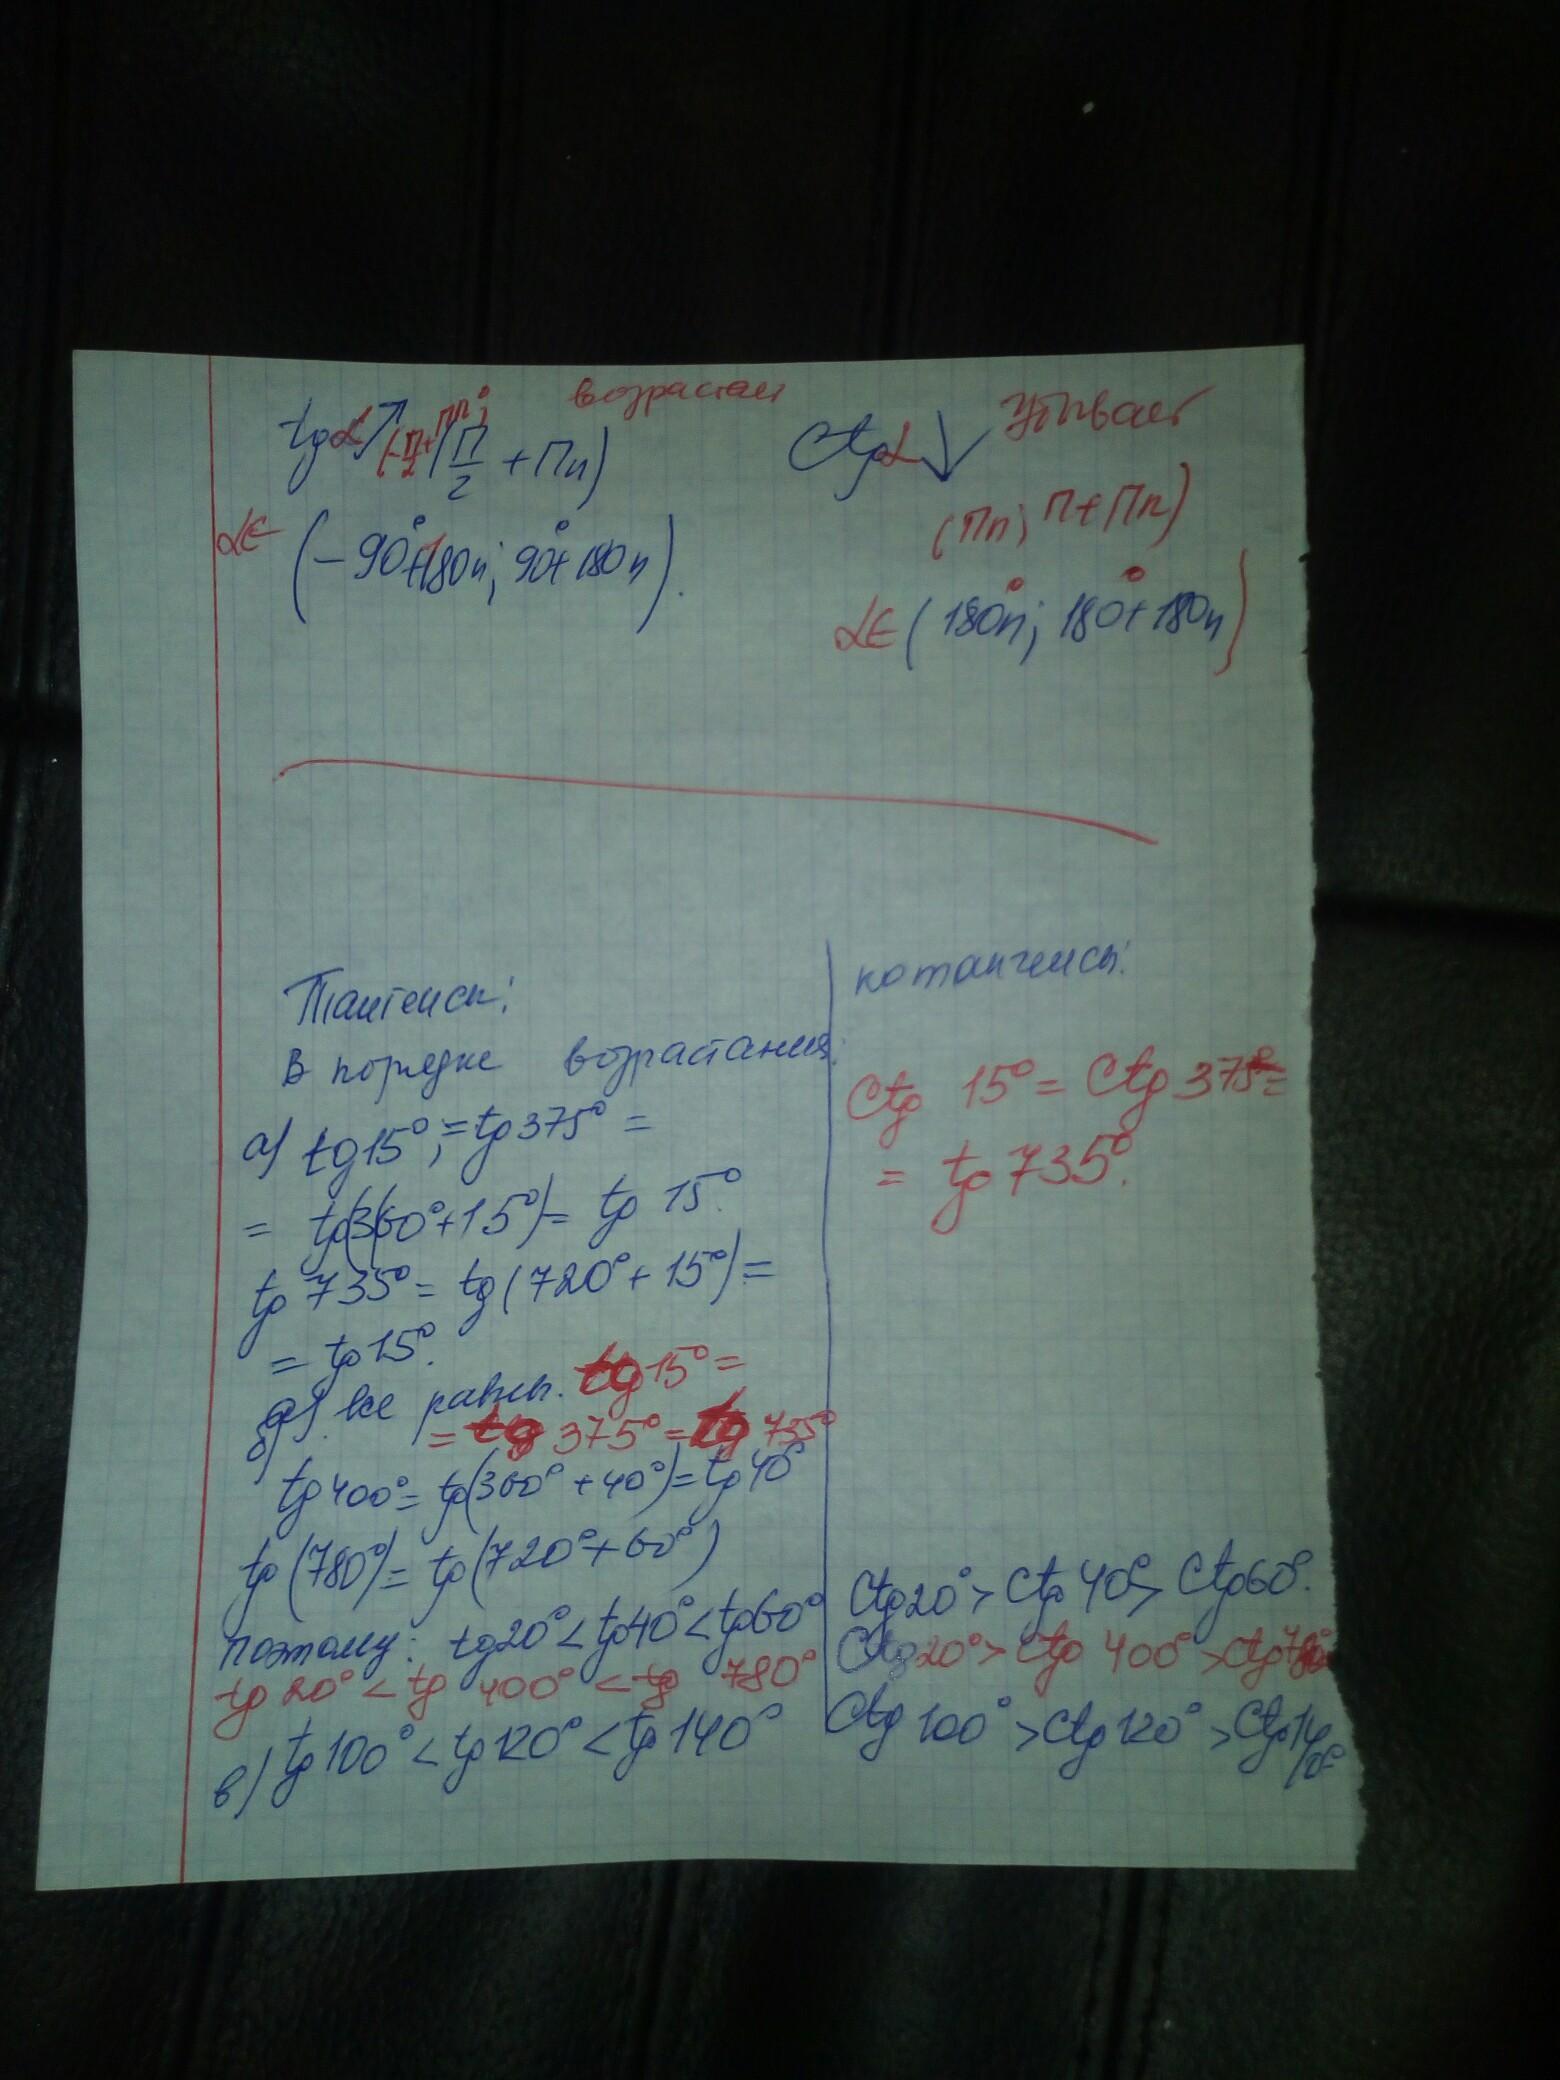 tgα↗ (-π/2+πn; π/2 + πn) возрастает
α∈ (-90°+180n; 90°+180n).
Ctgα ↓ Убывает
(πn; π+πn)
α∈ (180°n; 180°+180n)
Тангенсы:
В порядке возрастания:
а) tg15°; = tg375° =
= tg(360°+15°) = tg 15°.
tg 735° = tg(720° + 15°) =
= tg15°.
все равны. tg15° =
= tg 375° = tg 735°
б)
tg400° = tg(360° + 40°) = tg40°
tg(780°) = tg(720° + 60°)
поэтому: tg20° < tg40° < tg60°
tg20° < tg 400° < tg 780°
в) tg100° < tg120° < tg140°
котангенсы:
Ctg 15° = Ctg 375° =
= tg 735°.
Ctg20° > Ctg 40° > Ctg60°.
Ctg20° > Ctg 400° > Ctg780°
Ctg 100° > Ctg120° > Ctg140°